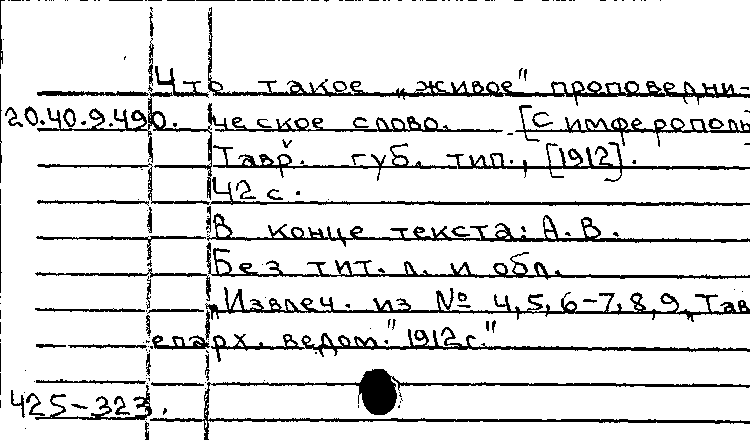 Что такое „живое" проповедни-
20.40.9.490. ческое слово. [Симферополь]
Тавр. губ. тип., [1912].
42 с.
В конце текста: А. В.
Без тит. л. и обл.
„Извлеч. из № 4,5,6-7,8,9 „Тав
епарх. ведом." 1912г."
425-323.